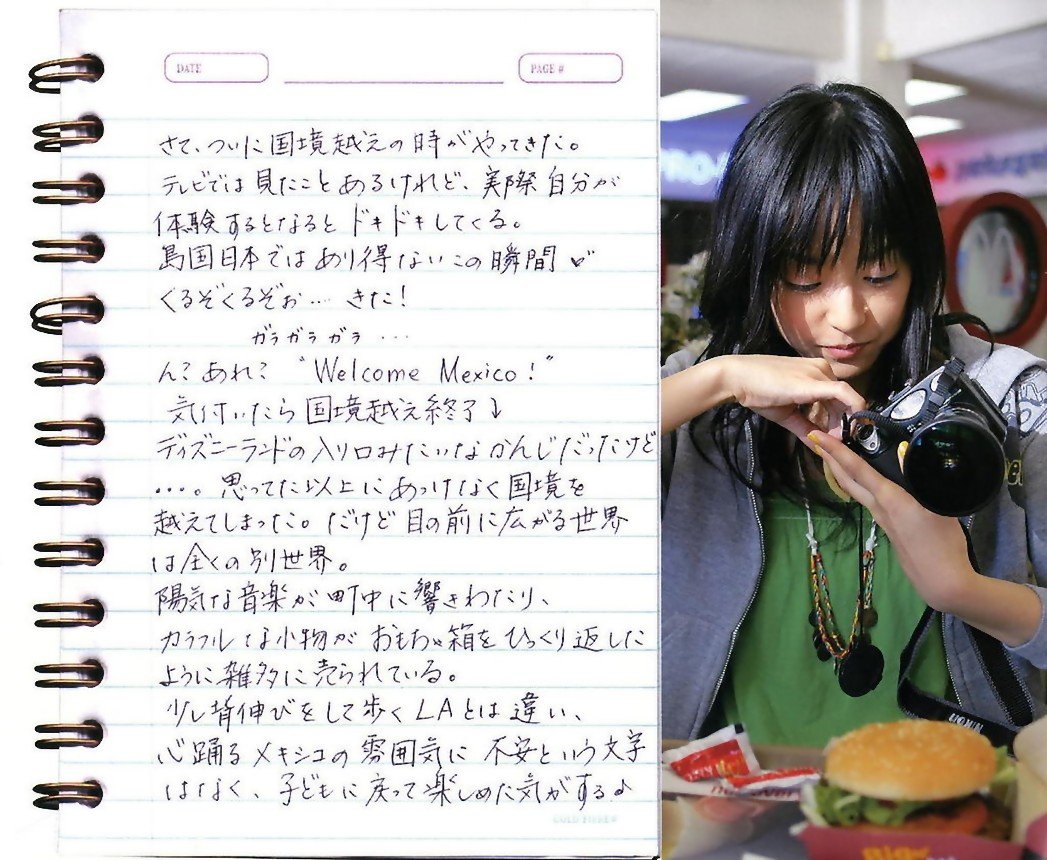 DATE
PAGE #
さて、ついに国境越えの時がやってきた。
テレビでは見たことあるけれど、実際自分が
体験するとなるとドキドキしてくる。
島国日本ではあり得ないこの瞬間
くるぞくるぞぉ… きた!
ガラガラガラ …
ん? あれ? "Welcome Mexico!"
気付いたら国境越え終了↓
ディズニーランドの入り口みたいなかんじだったけど
…。思ってた以上にあっけなく国境を
越えてしまった。だけど目の前に広がる世界
は全くの別世界。
陽気な音楽が町中に響きわたり、
カラフルな小物がおもちゃ箱をひっくり返した
ように雑多に売られている。
少し背伸びをして歩くLAとは違い、
心踊るメキシコの雰囲気に不安という文字
はなく、子どもに戻って楽しめた気がする♪
GOLD FIBRE®